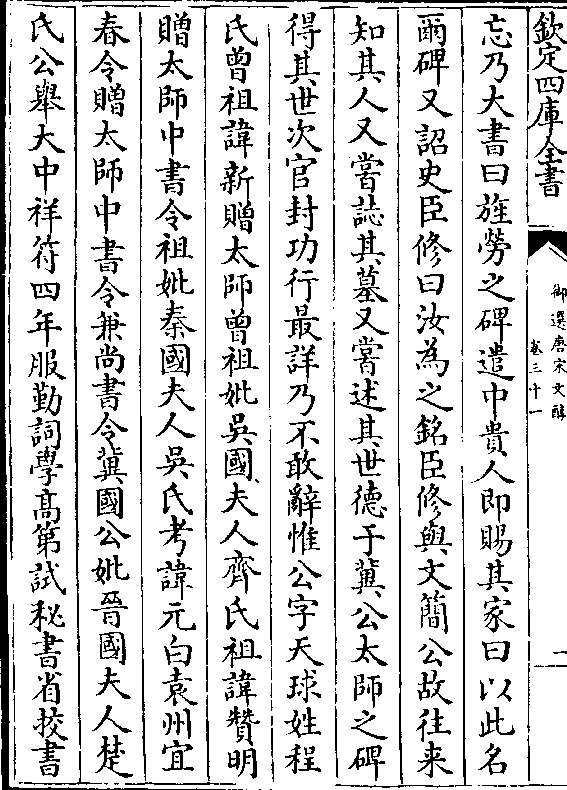 欽定四庫全書
御選唐宋文醇
卷三十一
一
忘乃大書曰旌勞之碑遣中貴人即賜其家曰以此名
爾碑又詔史臣修曰汝為之銘臣修與文簡公故往来
知其人又嘗誌其墓又嘗述其世德于冀公太師之碑
得其世次官封功行最詳乃不敢辭惟公字天球姓程
氏曾祖諱新贈太師曾祖妣吳國夫人齊氏祖諱贊明
贈太師中書令祖妣秦國夫人吳氏考諱元白袁州宜
春令贈太師中書令兼尚書令冀國公妣晉國夫人楚
氏公舉大中祥符四年服勤詞學高第試秘書省挍書